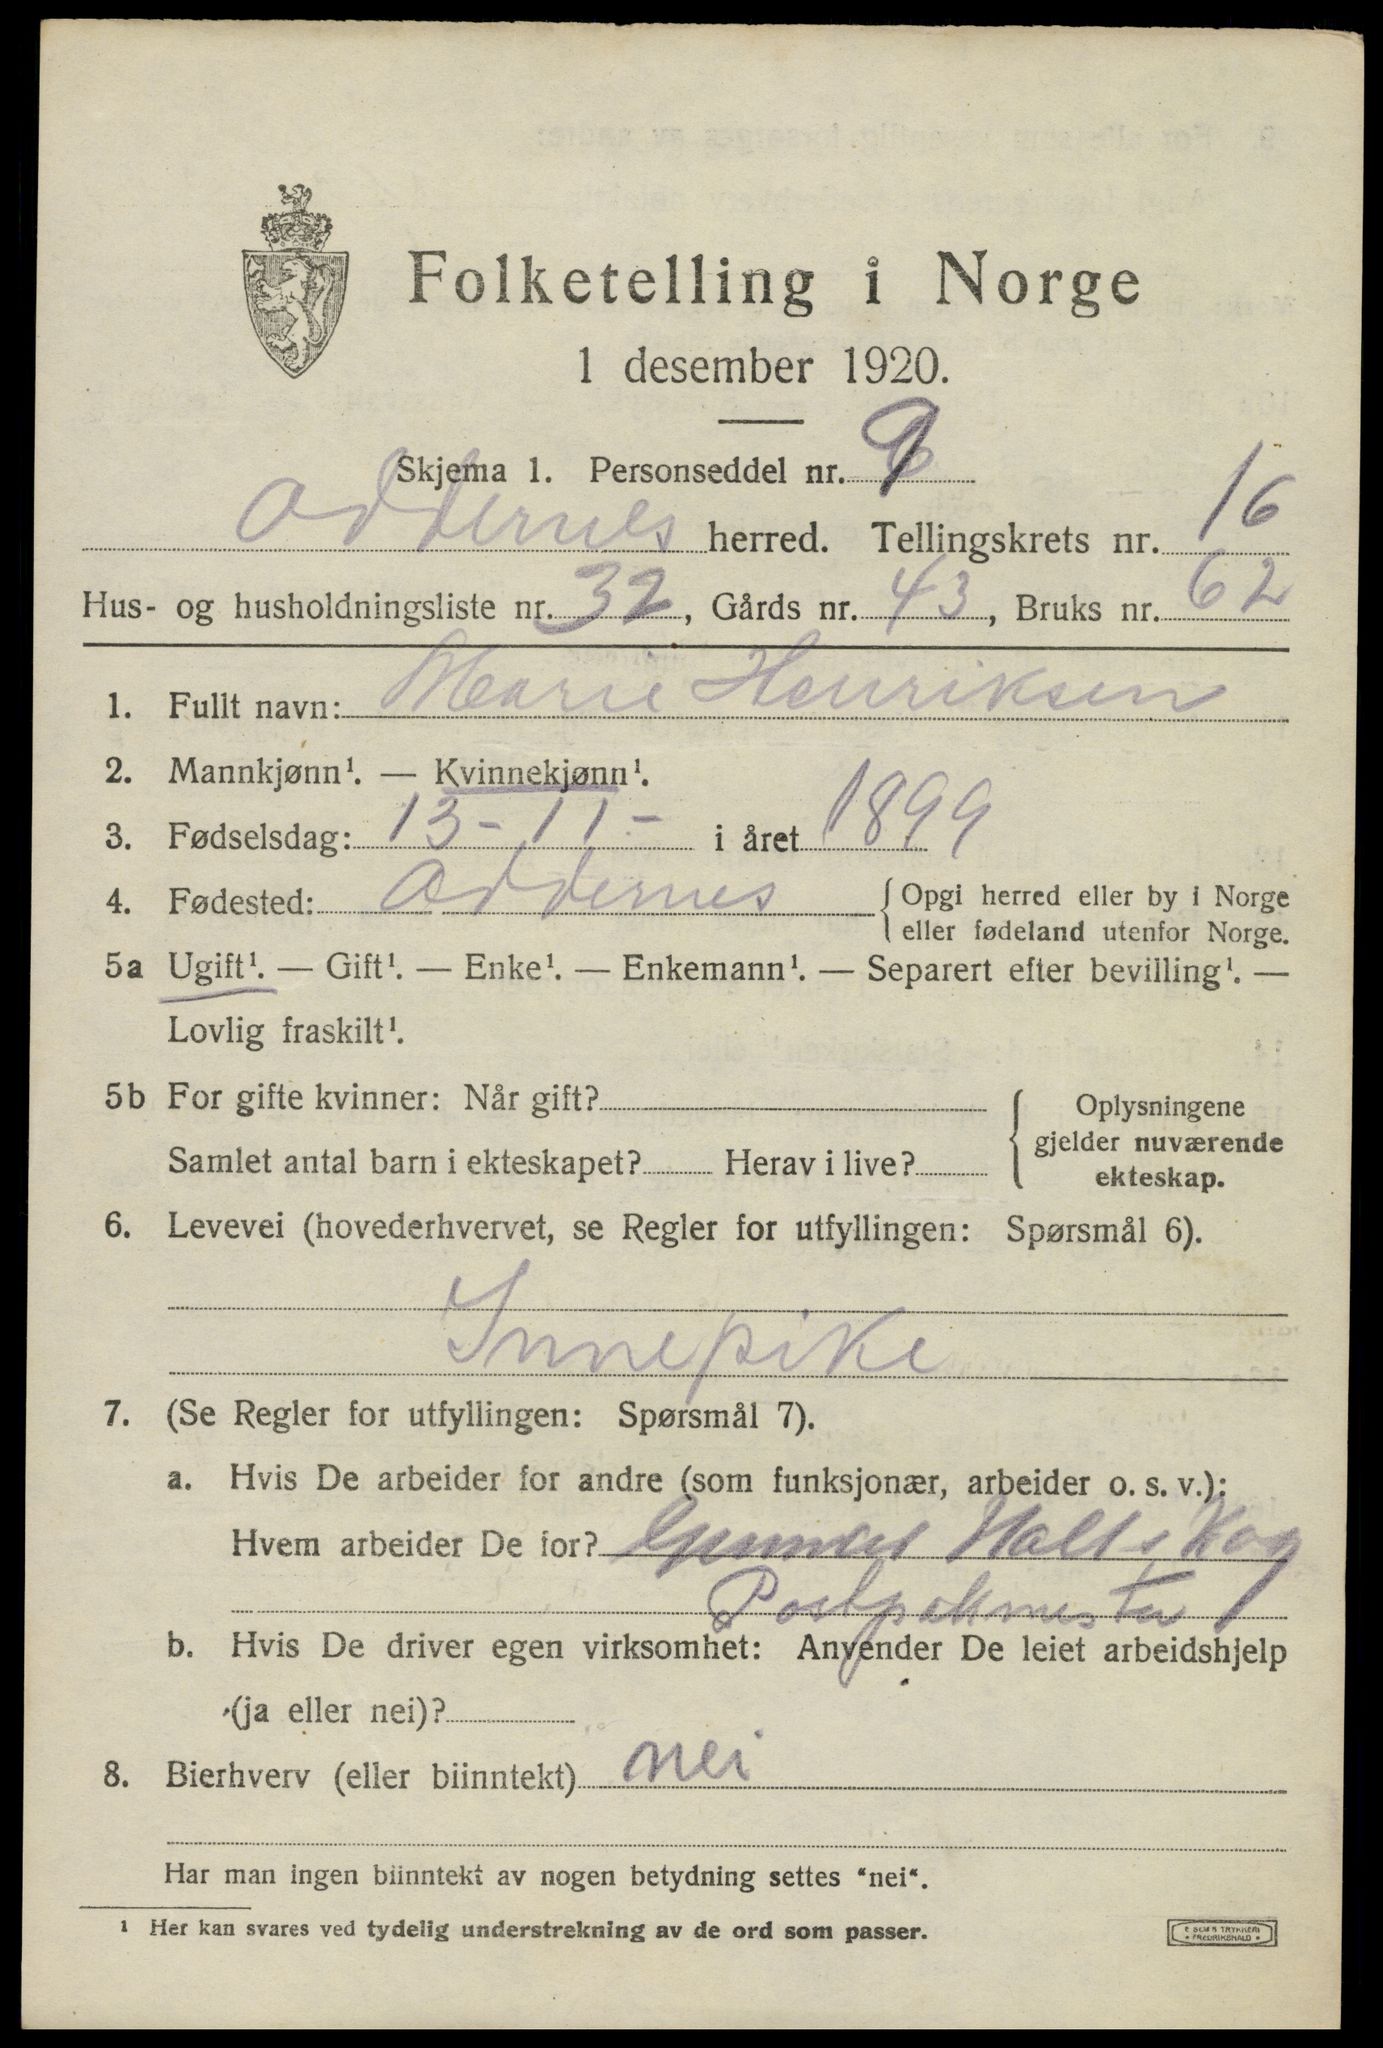 Folketelling i Norge
1 desember 1920.
Skjema 1. Personseddel nr. 9
Oddernes herred. Tellingskrets nr. 16
Hus- og husholdningsliste nr. 32, Gårds nr. 43, Bruks nr. 62
1. Fullt navn: Marie Henriksen
2. Mannkjønn¹. — Kvinnekjønn¹.
3. Fødselsdag: 13-11- i året 1899
4. Fødested: Oddernes { Opgi herred eller by i Norge
eller fødeland utenfor Norge.
5a Ugift¹. — Gift¹. — Enke¹. — Enkemann¹. — Separert efter bevilling¹. —
Lovlig fraskilt¹.
5b For gifte kvinner: Når gift? { Oplysningene
gjelder nuværende
Samlet antal barn i ekteskapet? Herav i live?
ekteskap.
6. Levevei (hovederhvervet, se Regler for utfyllingen: Spørsmål 6).
Innepike
7. (Se Regler for utfyllingen: Spørsmål 7).
a. Hvis De arbeider for andre (som funksjonær, arbeider o. s. v.):
Hvem arbeider De for? Gunnar Holtskog
Postpakmester
b. Hvis De driver egen virksomhet: Anvender De leiet arbeidshjelp
(ja eller nei)?
8. Bierhverv (eller biinntekt) nei
Har man ingen biinntekt av nogen betydning settes "nei".
¹ Her kan svares ved tydelig understrekning av de ord som passer.